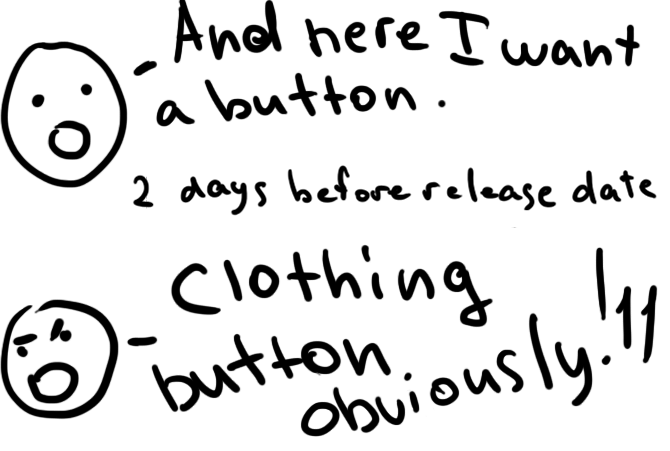 - And here I want
a button.
2 days before release date
- Clothing
button
obviously.!11